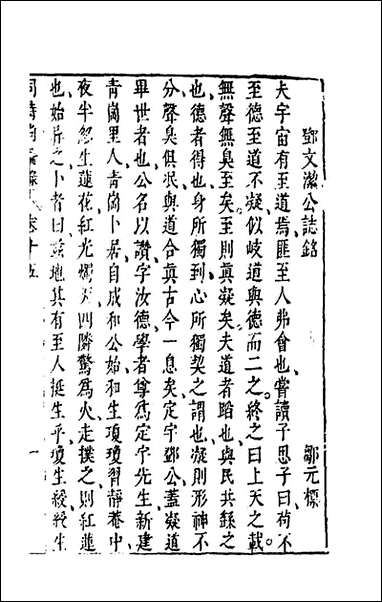 鄧文潔公誌銘
鄒元標
夫宇宙有至道焉匪至人弗會也嘗讀子思子曰苟不
至德至道不凝似岐道與德而二之終之曰上天之載
無聲無臭至矣至則真凝矣夫道者路也與民共繇之
也德者得也身所獨到心所獨契之謂也凝則形神不
分聲臭俱泯與道合真古今一息矣定宇鄧公蓋凝道
畢世者也公名以讚字汝德學者尊為定宇先生新建
青嵐里人青嵐卜居自成和公始和生瓊瓊習靜菴中
夜半忽生蓮花紅光燭天四隣驚為火走撲之則紅蓮
也始居之卜者曰茲地其有至人挺生乎瓊生綬綬生
卷十五
一